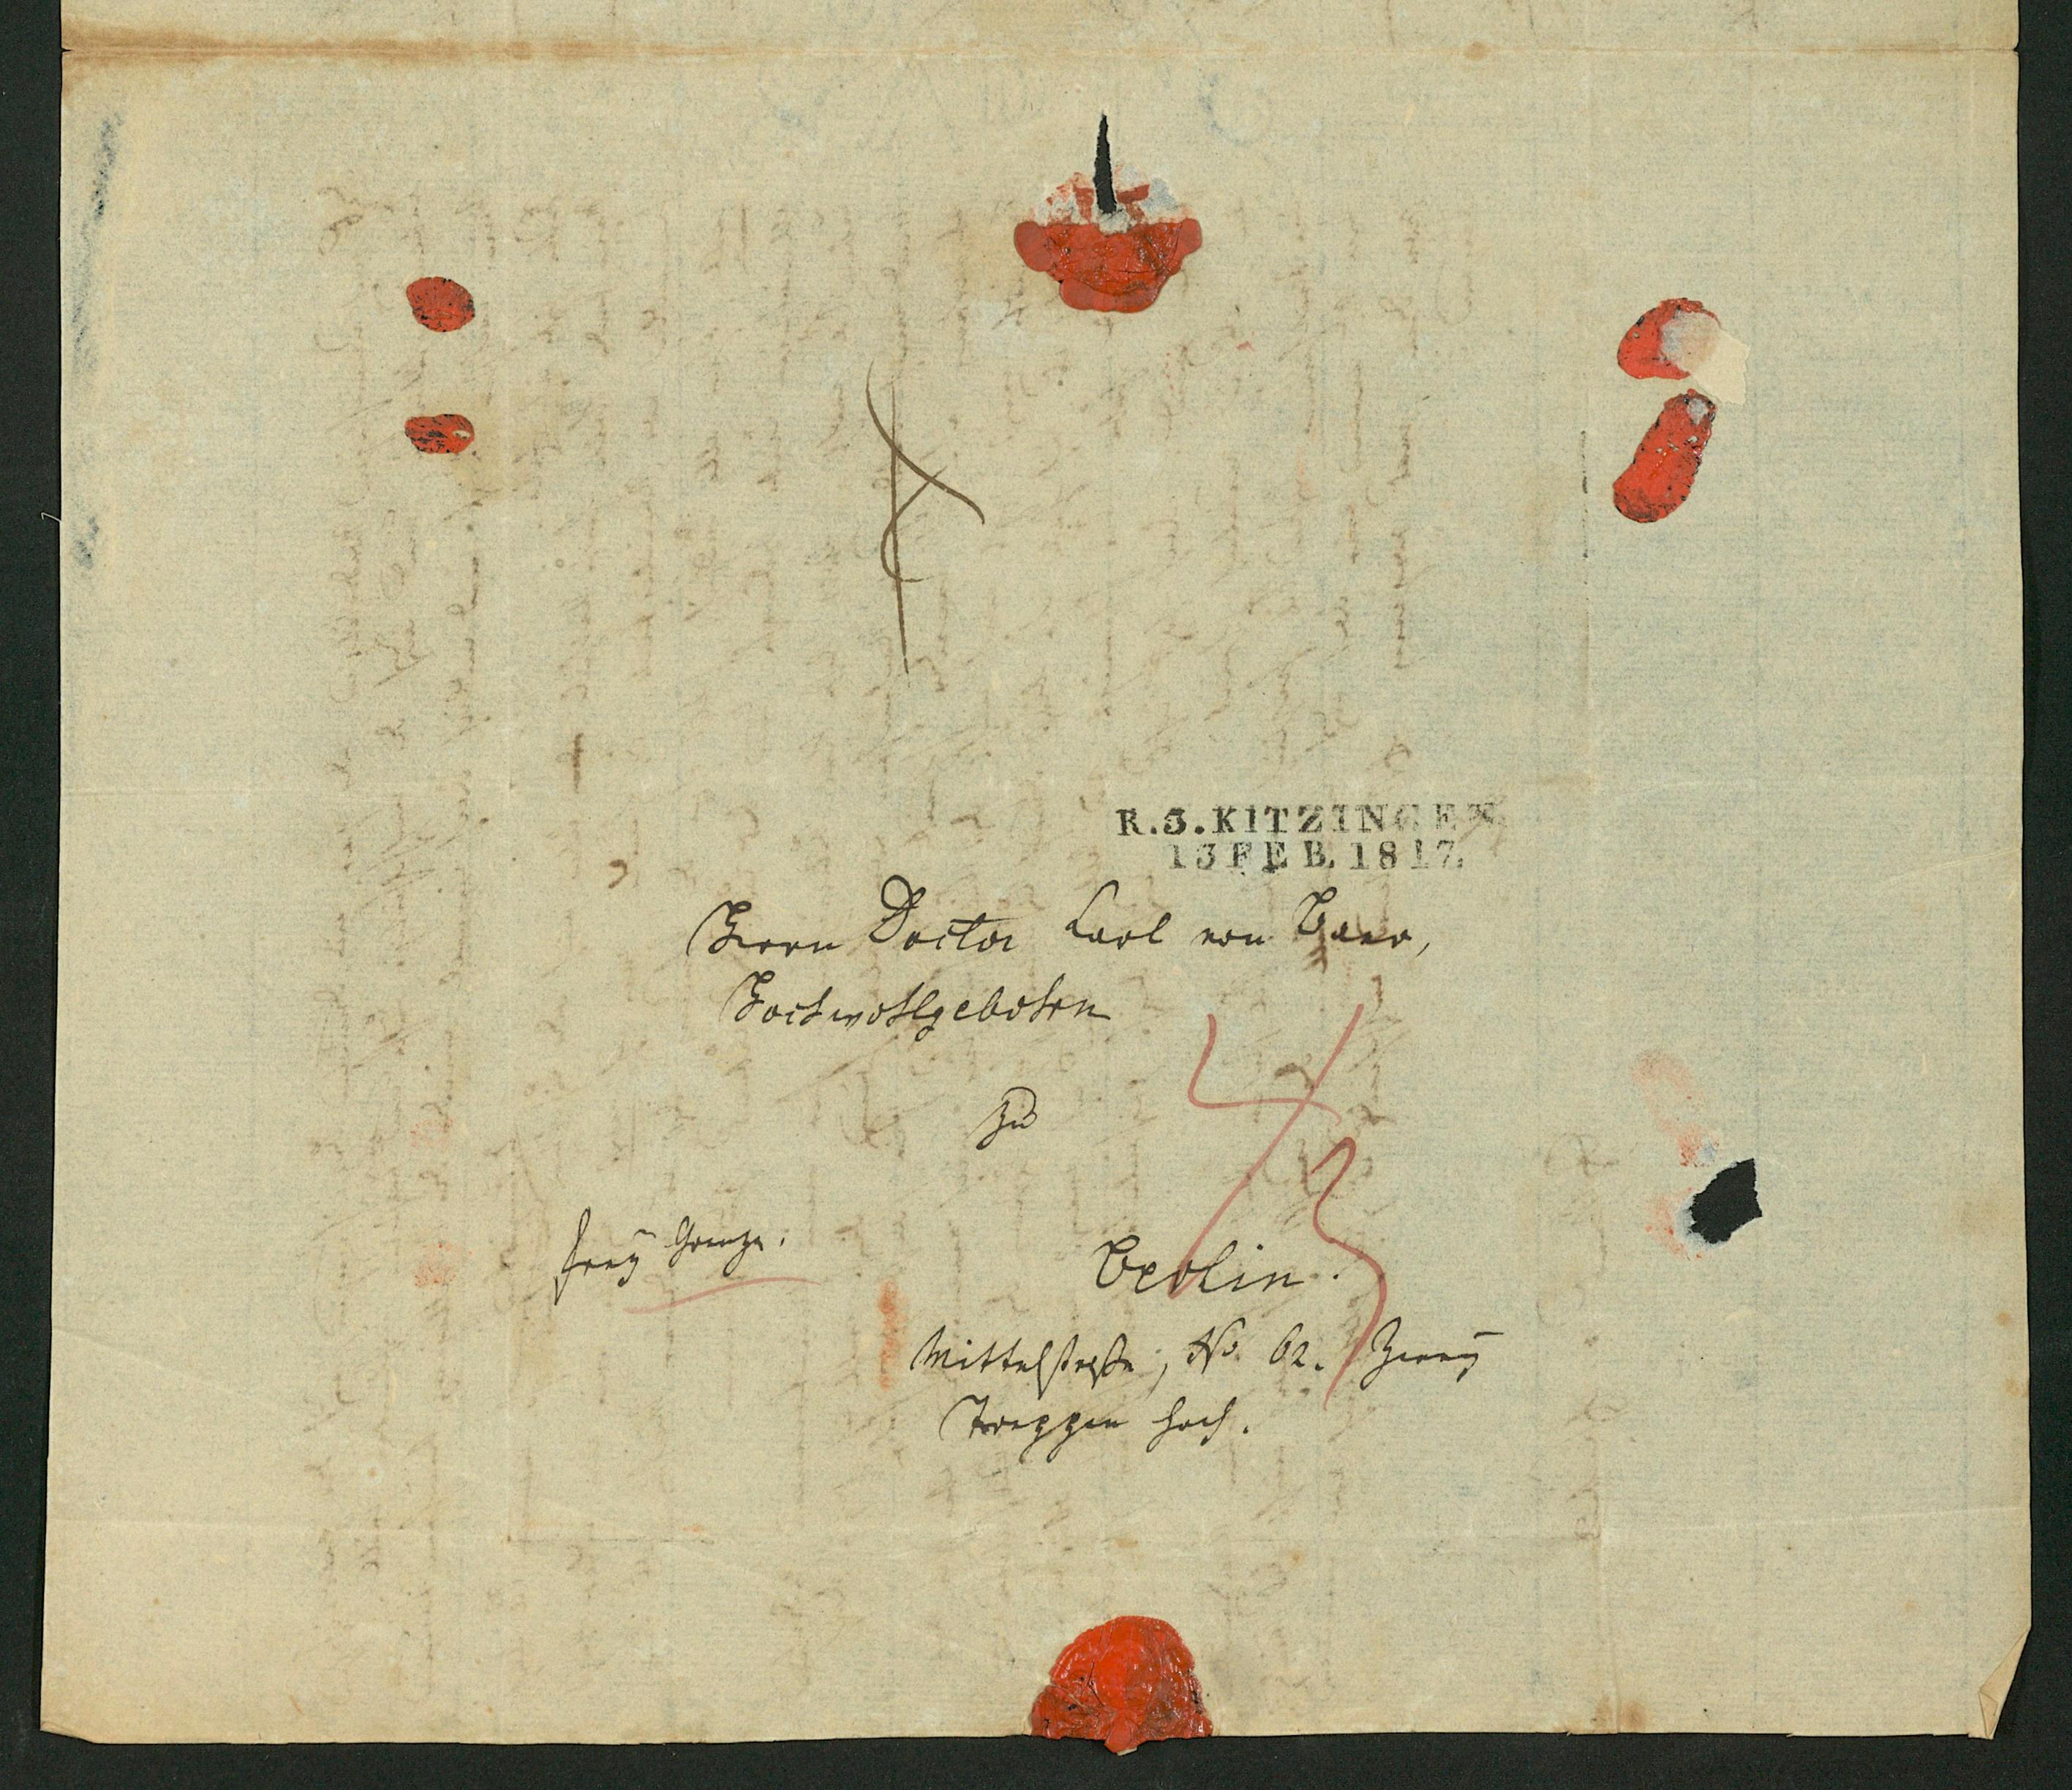 R.3.KITZINGEN
13 FEB. 1817.
Herrn Doctor Carl von Baer,
Hochwohlgeboren
zu
frey Grenze.
Berlin.
Mittelstraße, No 62. Zwey
Treppen hoch.